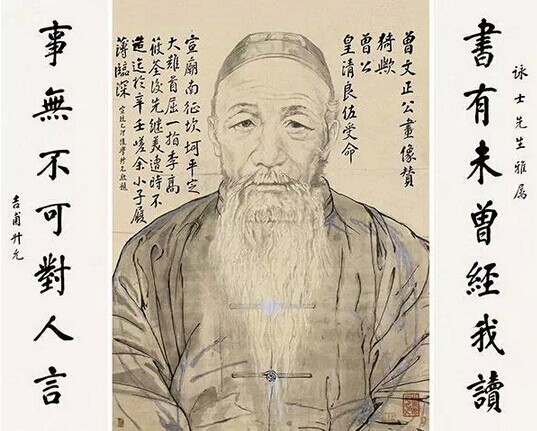 詠士先生雅屬
書有未曾經我讀
曾文正公畫像贊
猗歟
曾公
皇清良佐受命
宣廟南征坎坷平定
大難首屈一指李高
筱荃後先繼美遭時不
造迄於辛壬嗟余小子履
薄臨深
事無不可對人言
吉甫升允